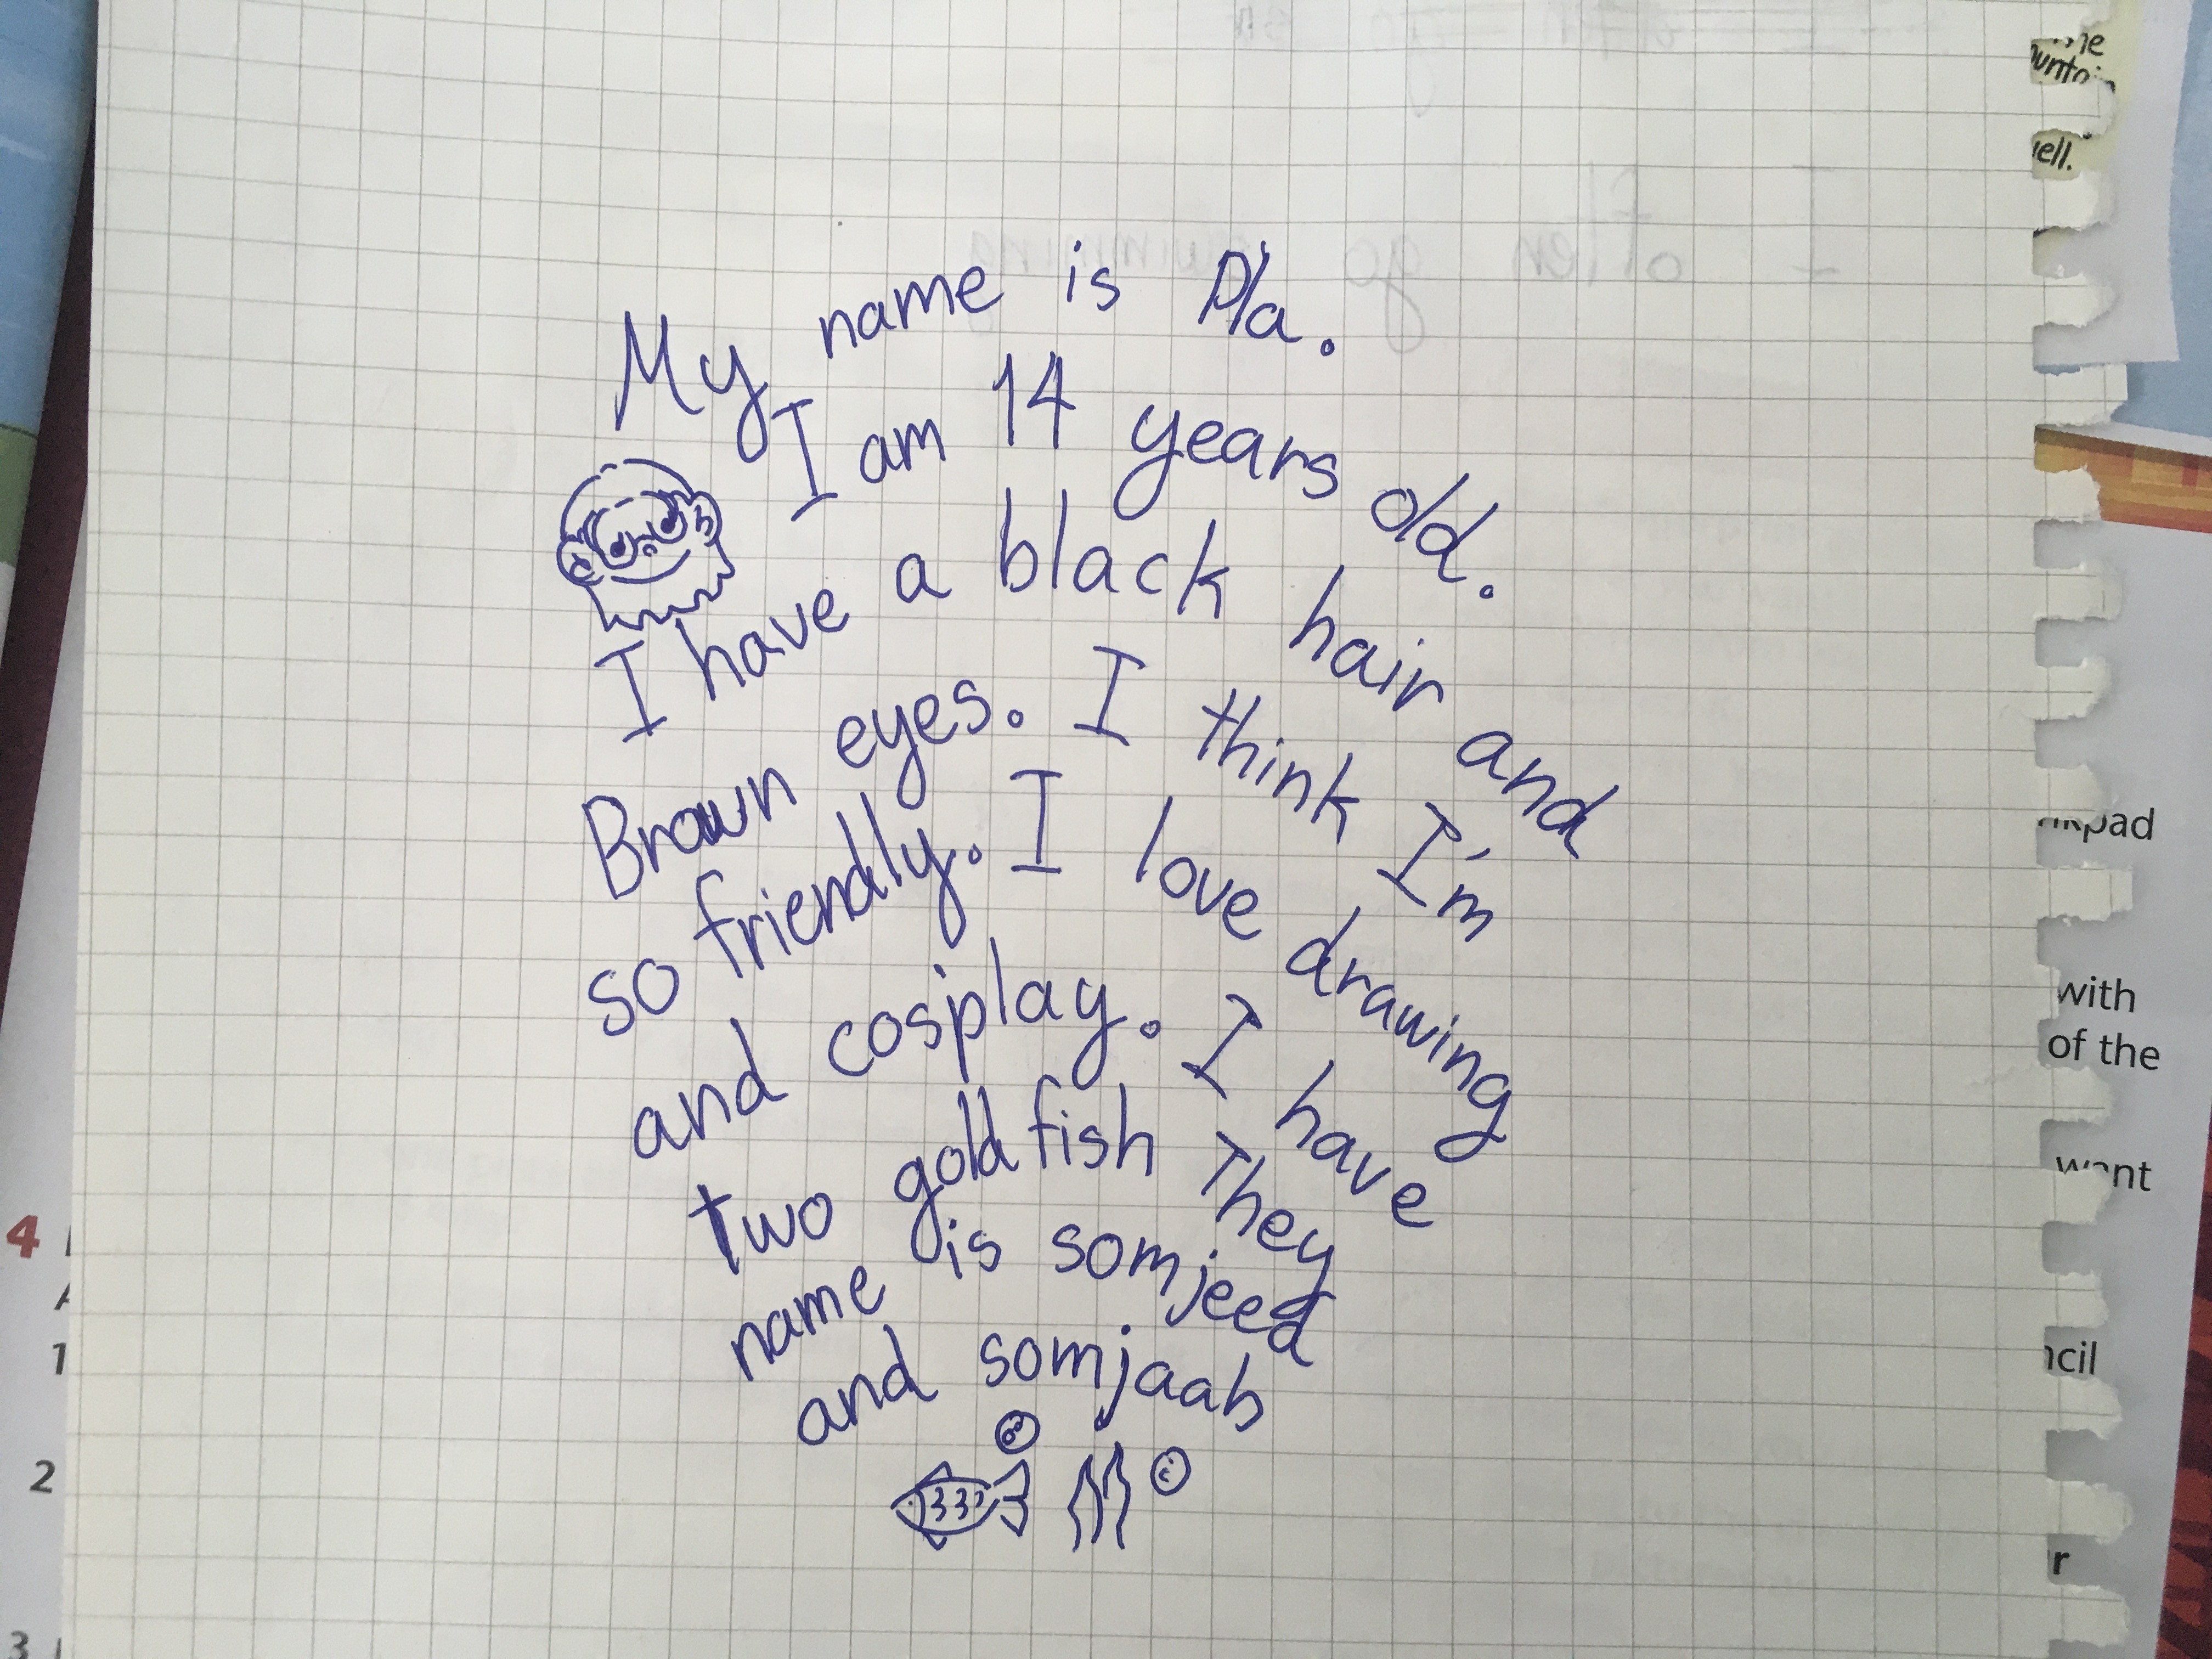 My name is Pla.
I am 14 years old.
I have a black hair and
Brown eyes. I think I'm
so friendly. I love drawing
and cosplay. I have
two goldfish They
name is somjeed
and somjaab
ell.
with
of the
4
1
2
3